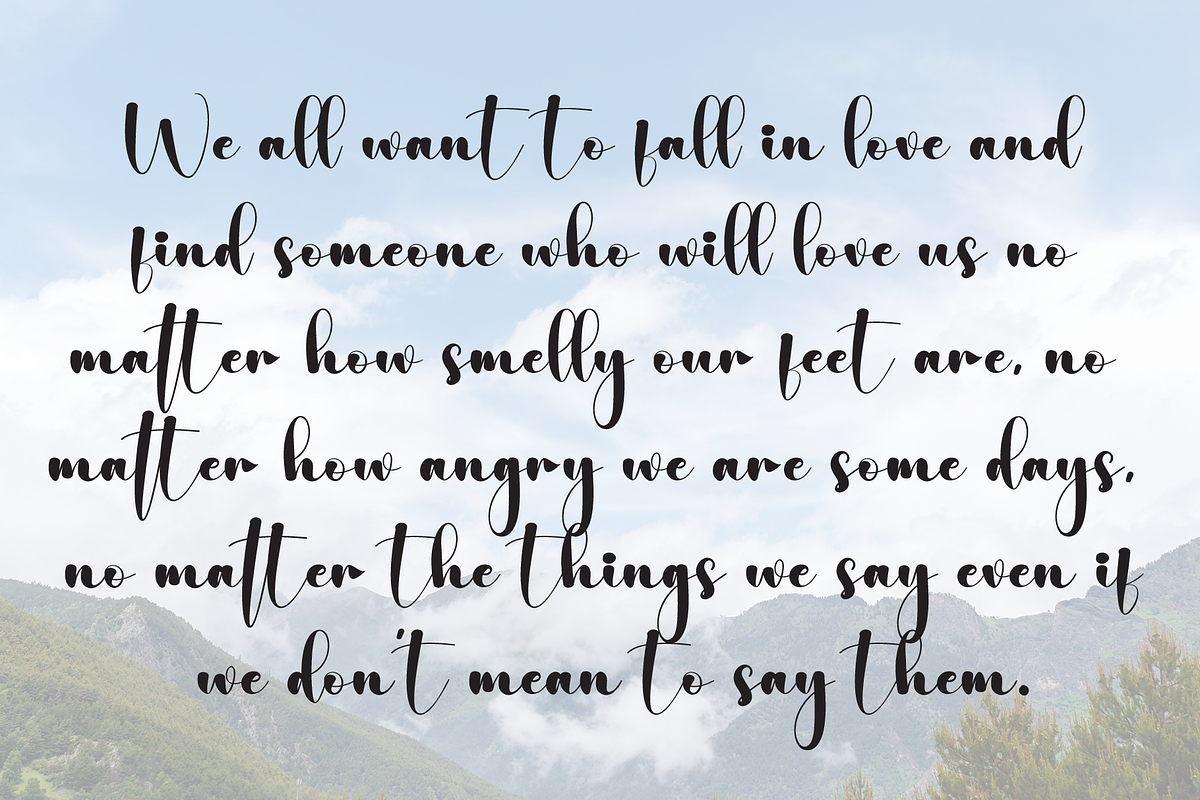 We all want to fall in love and
find someone who will love us no
matter how smelly our feet are, no
matter how angry we are some days,
no matter the things we say even if
we don't mean to say them.